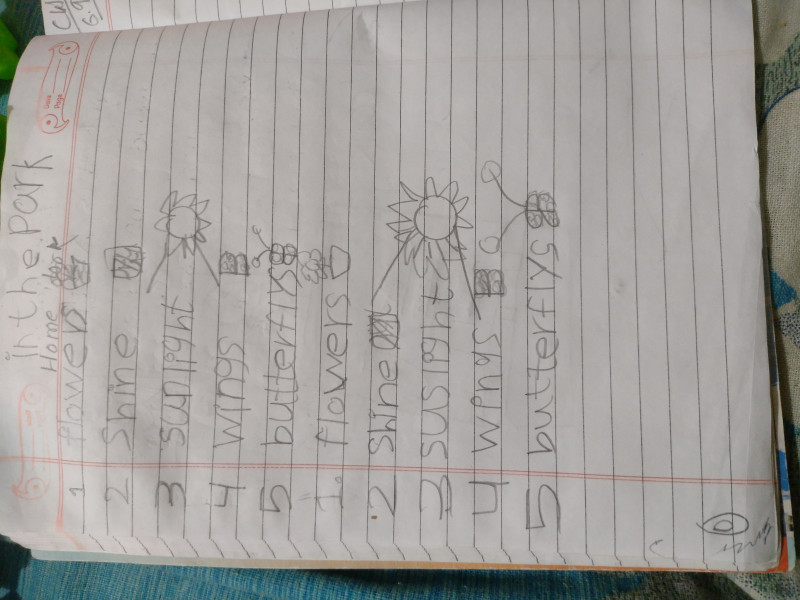 in the Park
Home work
1 flowers
2 Shine
3 sunlight
4 wings
5 butterflys
1. flowers
2 Shine
3 suslight
4 wings
5 butterflys